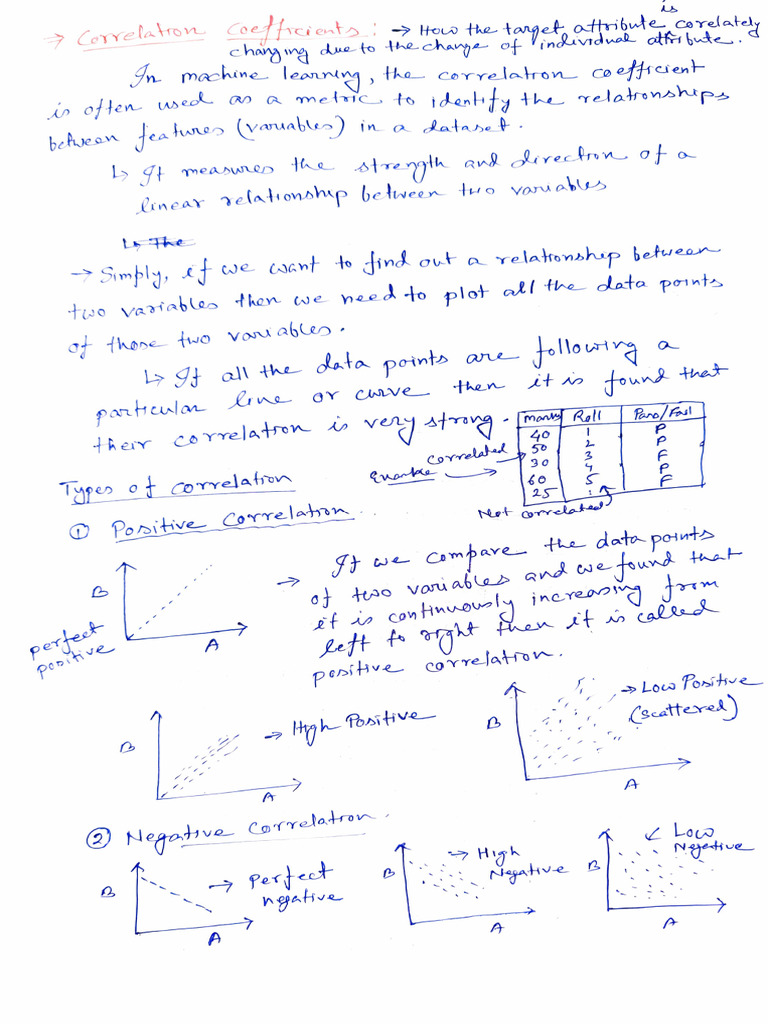 → Correlation Coefficients: → How the target attribute is corelately
changing due to the change of individual attribute.
In machine learning, the correlation coefficient
is often used as a metric to identify the relationships
between features (variables) in a dataset.
↳ It measures the strength and direction of a
linear relationship between two variables
↳ The
→ Simply, if we want to find out a relationship between
two variables then we need to plot all the data points
of those two variables.
↳ If all the data points are following a
particular line or curve then it is found that
their correlation is very strong.
Marks Roll Pass/Fail
40 1 P
50 2 P
30 3 F
60 4 P
25 5 F
Correlated
Not correlated
Types of correlation
① Positive Correlation
B
A
perfect
positive
→ If we compare the data points
of two variables and we found that
it is continuously increasing from
left to right then it is called
positive correlation.
B
A
→ High Positive
B
A
→ Low Positive
(scattered)
② Negative Correlation.
B
A
→ perfect
negative
B
A
→ High
Negative
B
A
Low
Negative